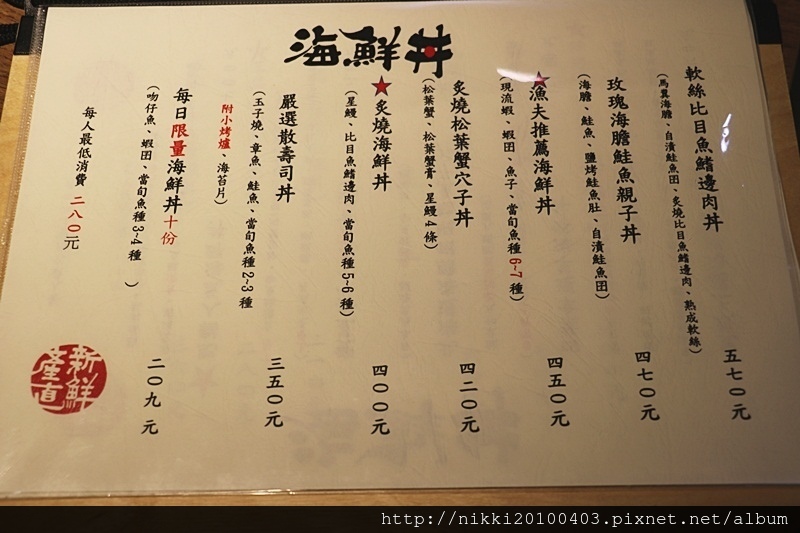 海鮮丼
軟絲比目魚鰭邊肉丼
(馬糞海膽、自漬鮭魚囝、炙燒比目魚鰭邊肉、熟成軟絲)
五七〇元
玫瑰海膽鮭魚親子丼
(海膽、鮭魚、鹽烤鮭魚肚、自漬鮭魚囝)
四七〇元
★漁夫推薦海鮮丼
(現流蝦、蝦囝、魚子、當旬魚種6~7種)
四五〇元
炙燒松葉蟹穴子丼
(松葉蟹、松葉蟹膏、星鰻4條)
四二〇元
★炙燒海鮮丼
(星鰻、比目魚鰭邊肉、當旬魚種5~6種)
四〇〇元
嚴選散壽司丼
(玉子燒、章魚、鮭魚、當旬魚種2~3種
附小烤爐、海苔片)
三五〇元
每日限量海鮮丼十份
(吻仔魚、蝦囝、當旬魚種3~4種 )
二〇九元
每人最低消費 二八〇元
新鮮
產直
http://nikki20100403.pixnet.net/album